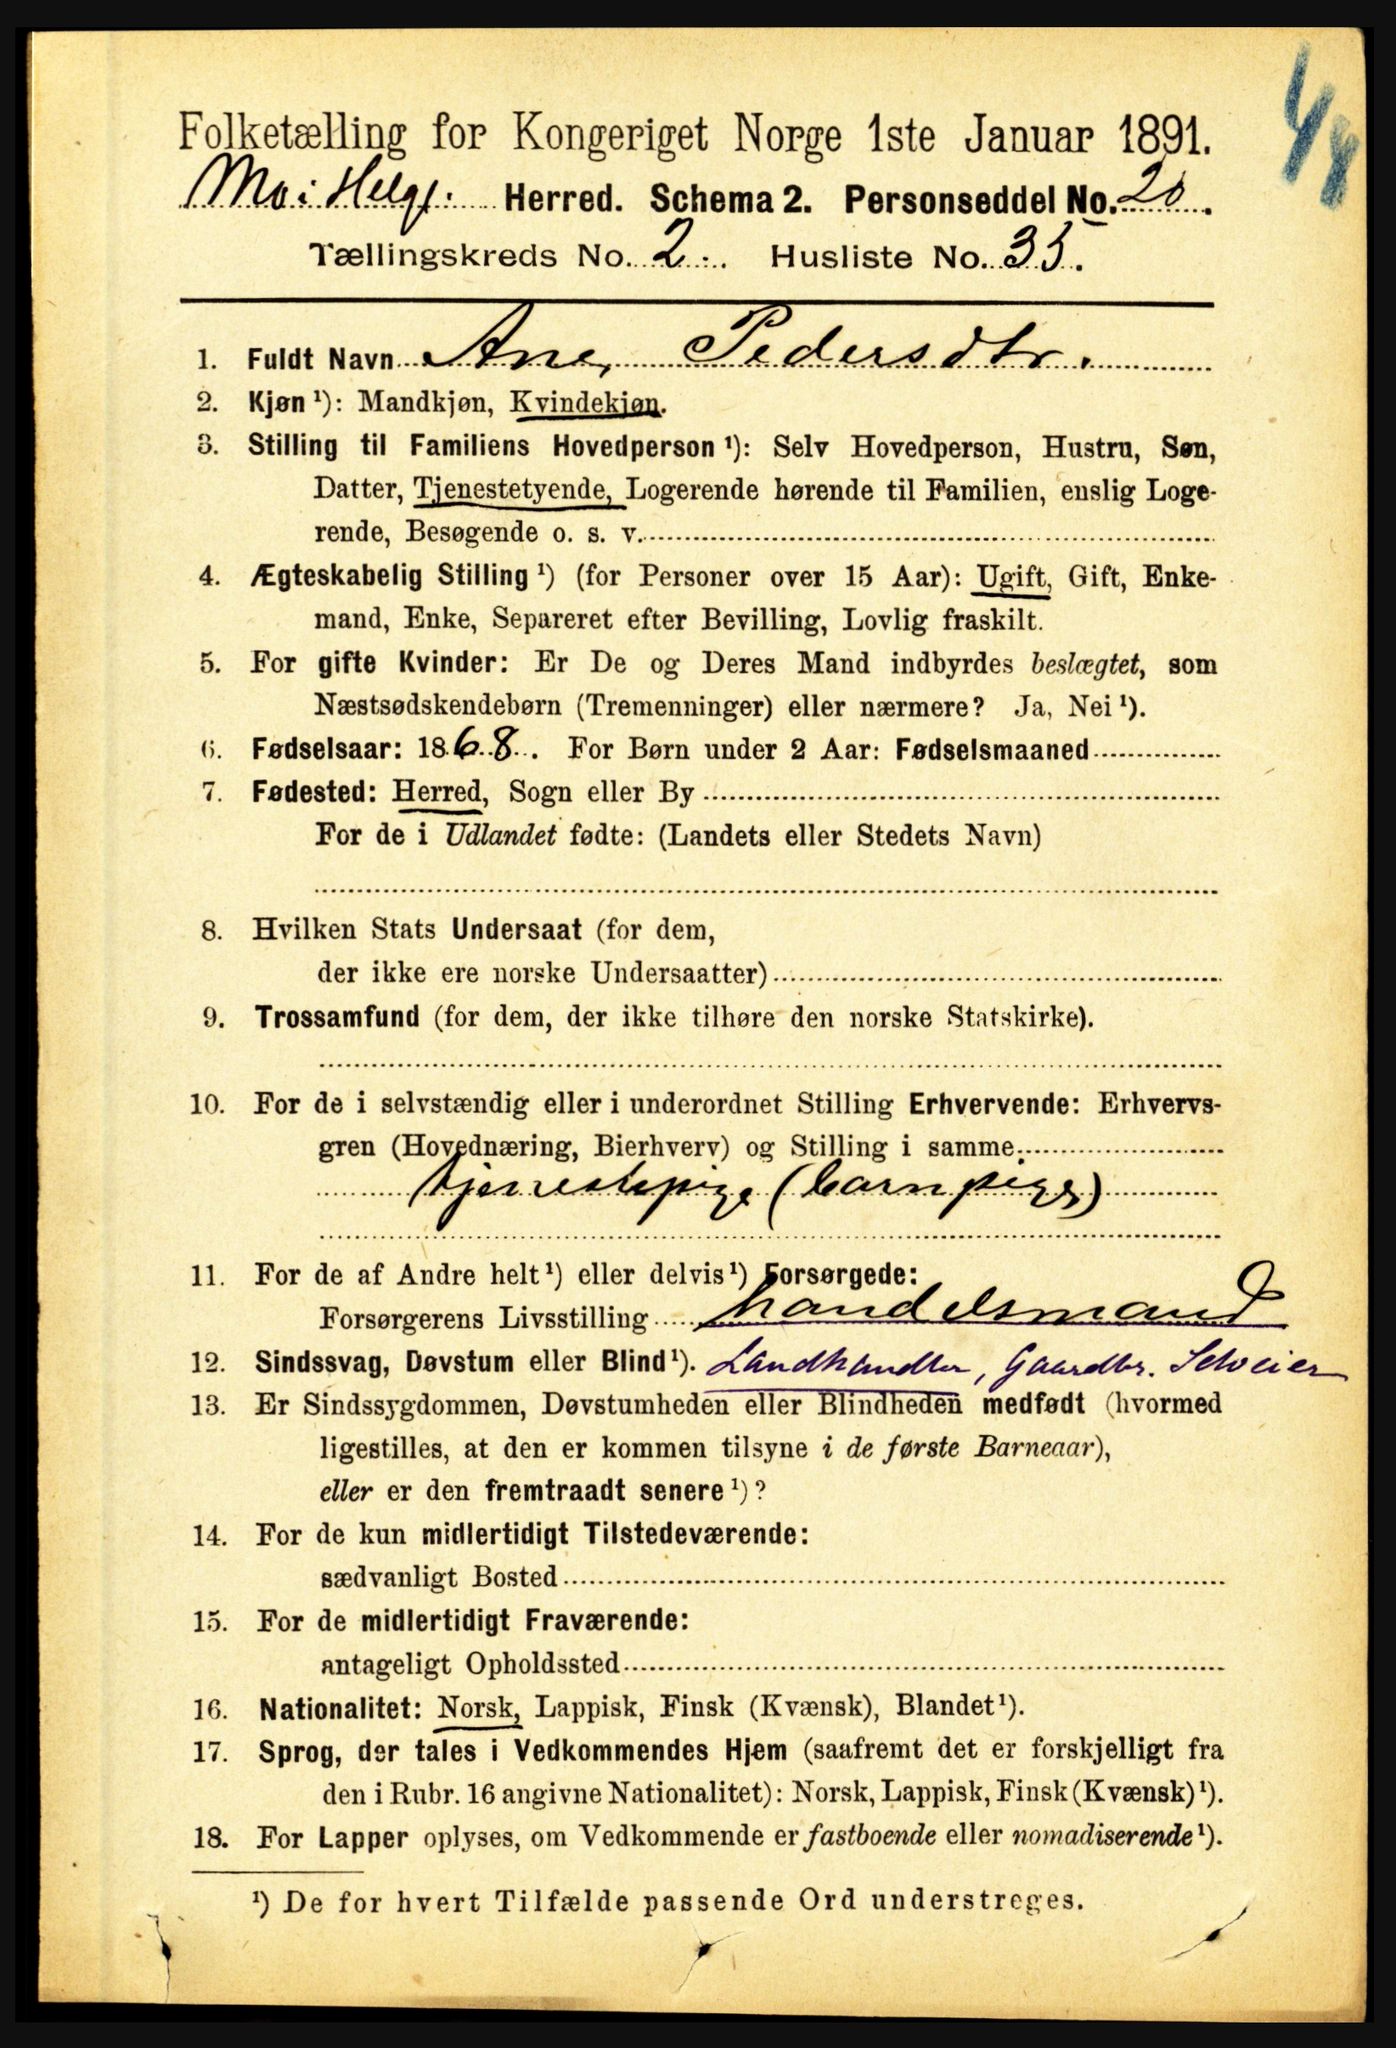 48
Folketælling for Kongeriget Norge 1ste Januar 1891.
Mo i Helgl. Herred. Schema 2. Personseddel No. 20.
Tællingskreds No. 2. Husliste No. 35.
1. Fuldt Navn Ane Pedersdtr.
2. Kjøn ¹): Mandkjøn, Kvindekjøn.
3. Stilling til Familiens Hovedperson ¹): Selv Hovedperson, Hustru, Søn,
Datter, Tjenestetyende, Logerende hørende til Familien, enslig Loge-
rende, Besøgende o. s. v.
4. Ægteskabelig Stilling ¹) (for Personer over 15 Aar): Ugift, Gift, Enke-
mand, Enke, Separeret efter Bevilling, Lovlig fraskilt.
5. For gifte Kvinder: Er De og Deres Mand indbyrdes beslægtet, som
Næstsødskendebørn (Tremenninger) eller nærmere? Ja, Nei ¹).
6. Fødselsaar: 1868. For Børn under 2 Aar: Fødselsmaaned
7. Fødested: Herred, Sogn eller By
For de i Udlandet fødte: (Landets eller Stedets Navn)
8. Hvilken Stats Undersaat (for dem,
der ikke ere norske Undersaatter)
9. Trossamfund (for dem, der ikke tilhøre den norske Statskirke).
10. For de i selvstændig eller i underordnet Stilling Erhvervende: Erhvervs-
gren (Hovednæring, Bierhverv) og Stilling i samme
tjenestepige (barnpige)
11. For de af Andre helt ¹) eller delvis ¹) Forsørgede:
Forsørgerens Livsstilling handelsmand
12. Sindssvag, Døvstum eller Blind ¹). Landhandler, Gaardbr. Selveier
13. Er Sindssygdommen, Døvstumheden eller Blindheden medfødt (hvormed
ligestilles, at den er kommen tilsyne i de første Barneaar),
eller er den fremtraadt senere ¹)?
14. For de kun midlertidigt Tilstedeværende:
sædvanligt Bosted
15. For de midlertidigt Fraværende:
antageligt Opholdssted
16. Nationalitet: Norsk, Lappisk, Finsk (Kvænsk), Blandet ¹).
17. Sprog, der tales i Vedkommendes Hjem (saafremt det er forskjelligt fra
den i Rubr. 16 angivne Nationalitet): Norsk, Lappisk, Finsk (Kvænsk) ¹).
18. For Lapper oplyses, om Vedkommende er fastboende eller nomadiserende ¹).
¹) De for hvert Tilfælde passende Ord understreges.